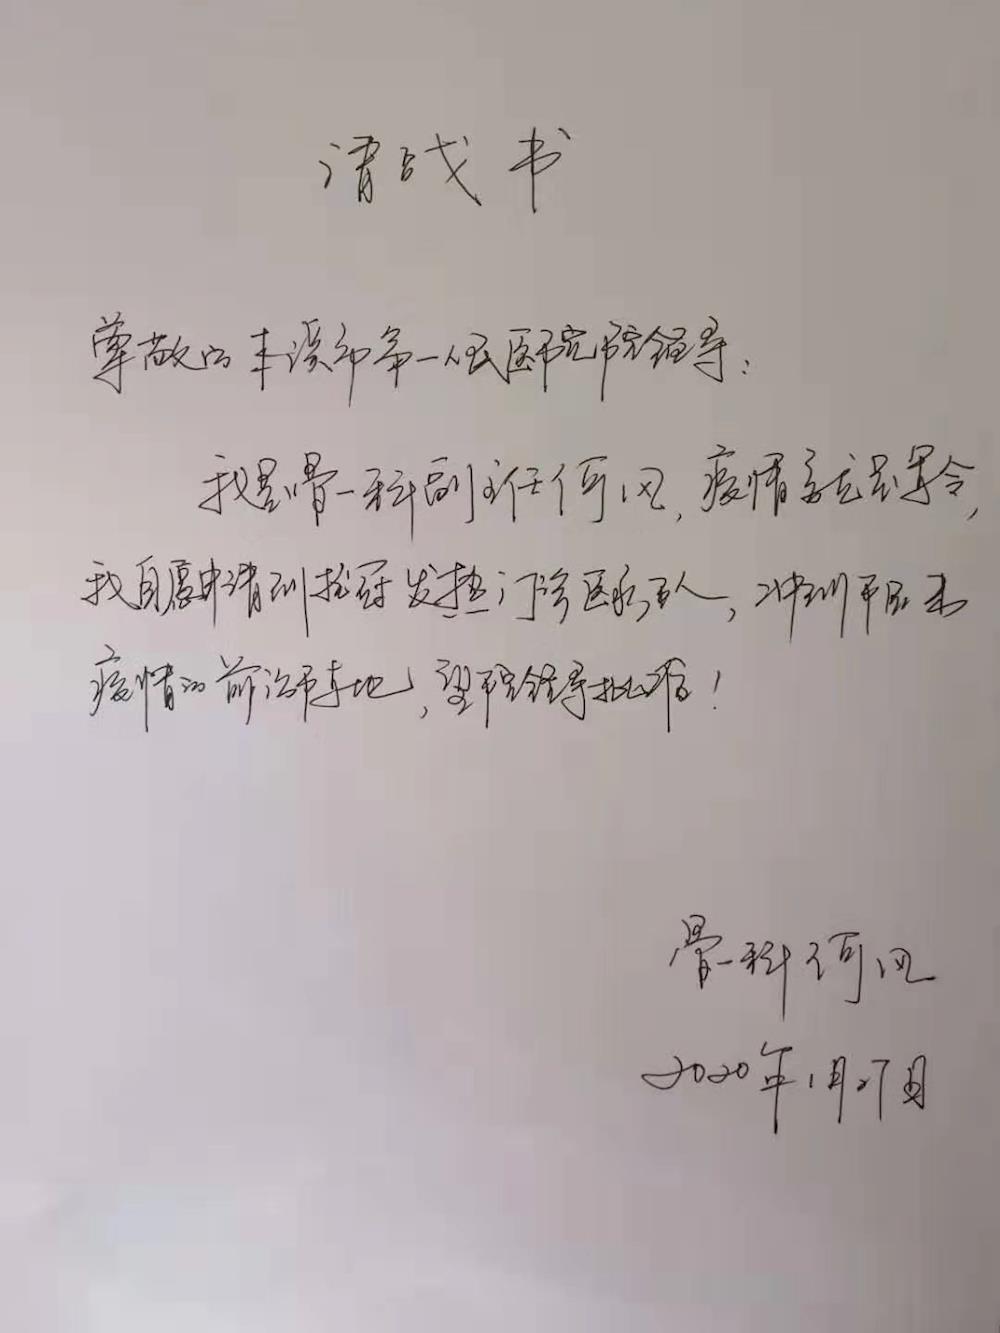 请战书
尊敬的本溪市第一人民医院院领导：
我是骨一科副主任何风，疫情就是军令，
我自愿申请到抗冠发热门诊医务人，冲到
疫情的前沿阵地，望院领导批准！
骨一科何风
2020年1月27日